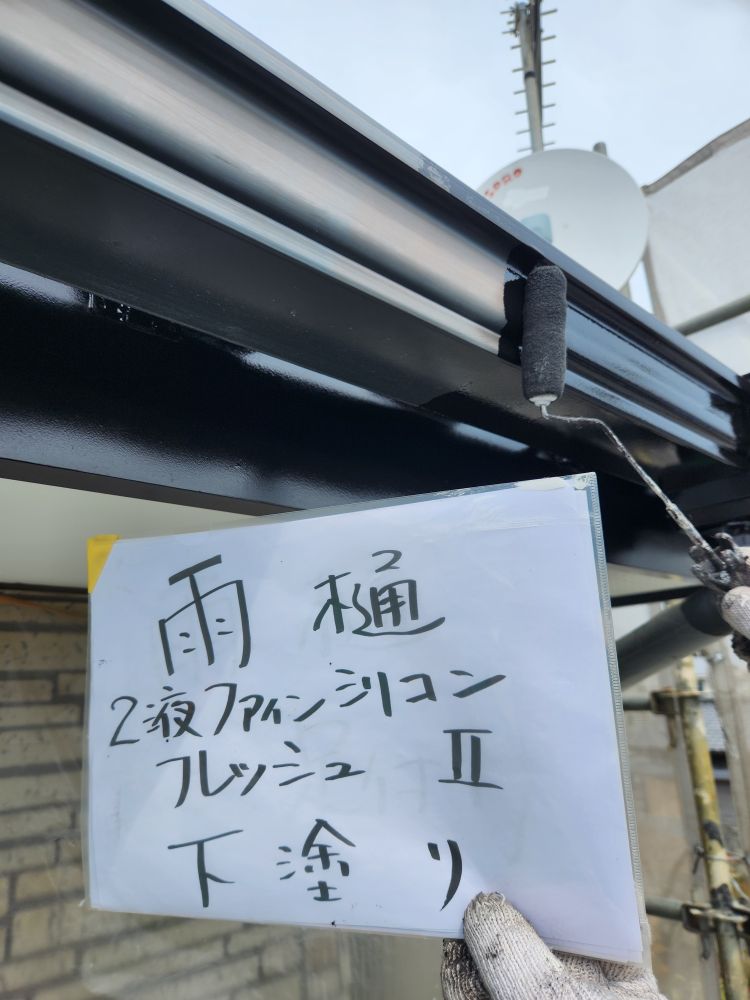 雨樋
2液ファインシリコン
フレッシュ II
下塗り